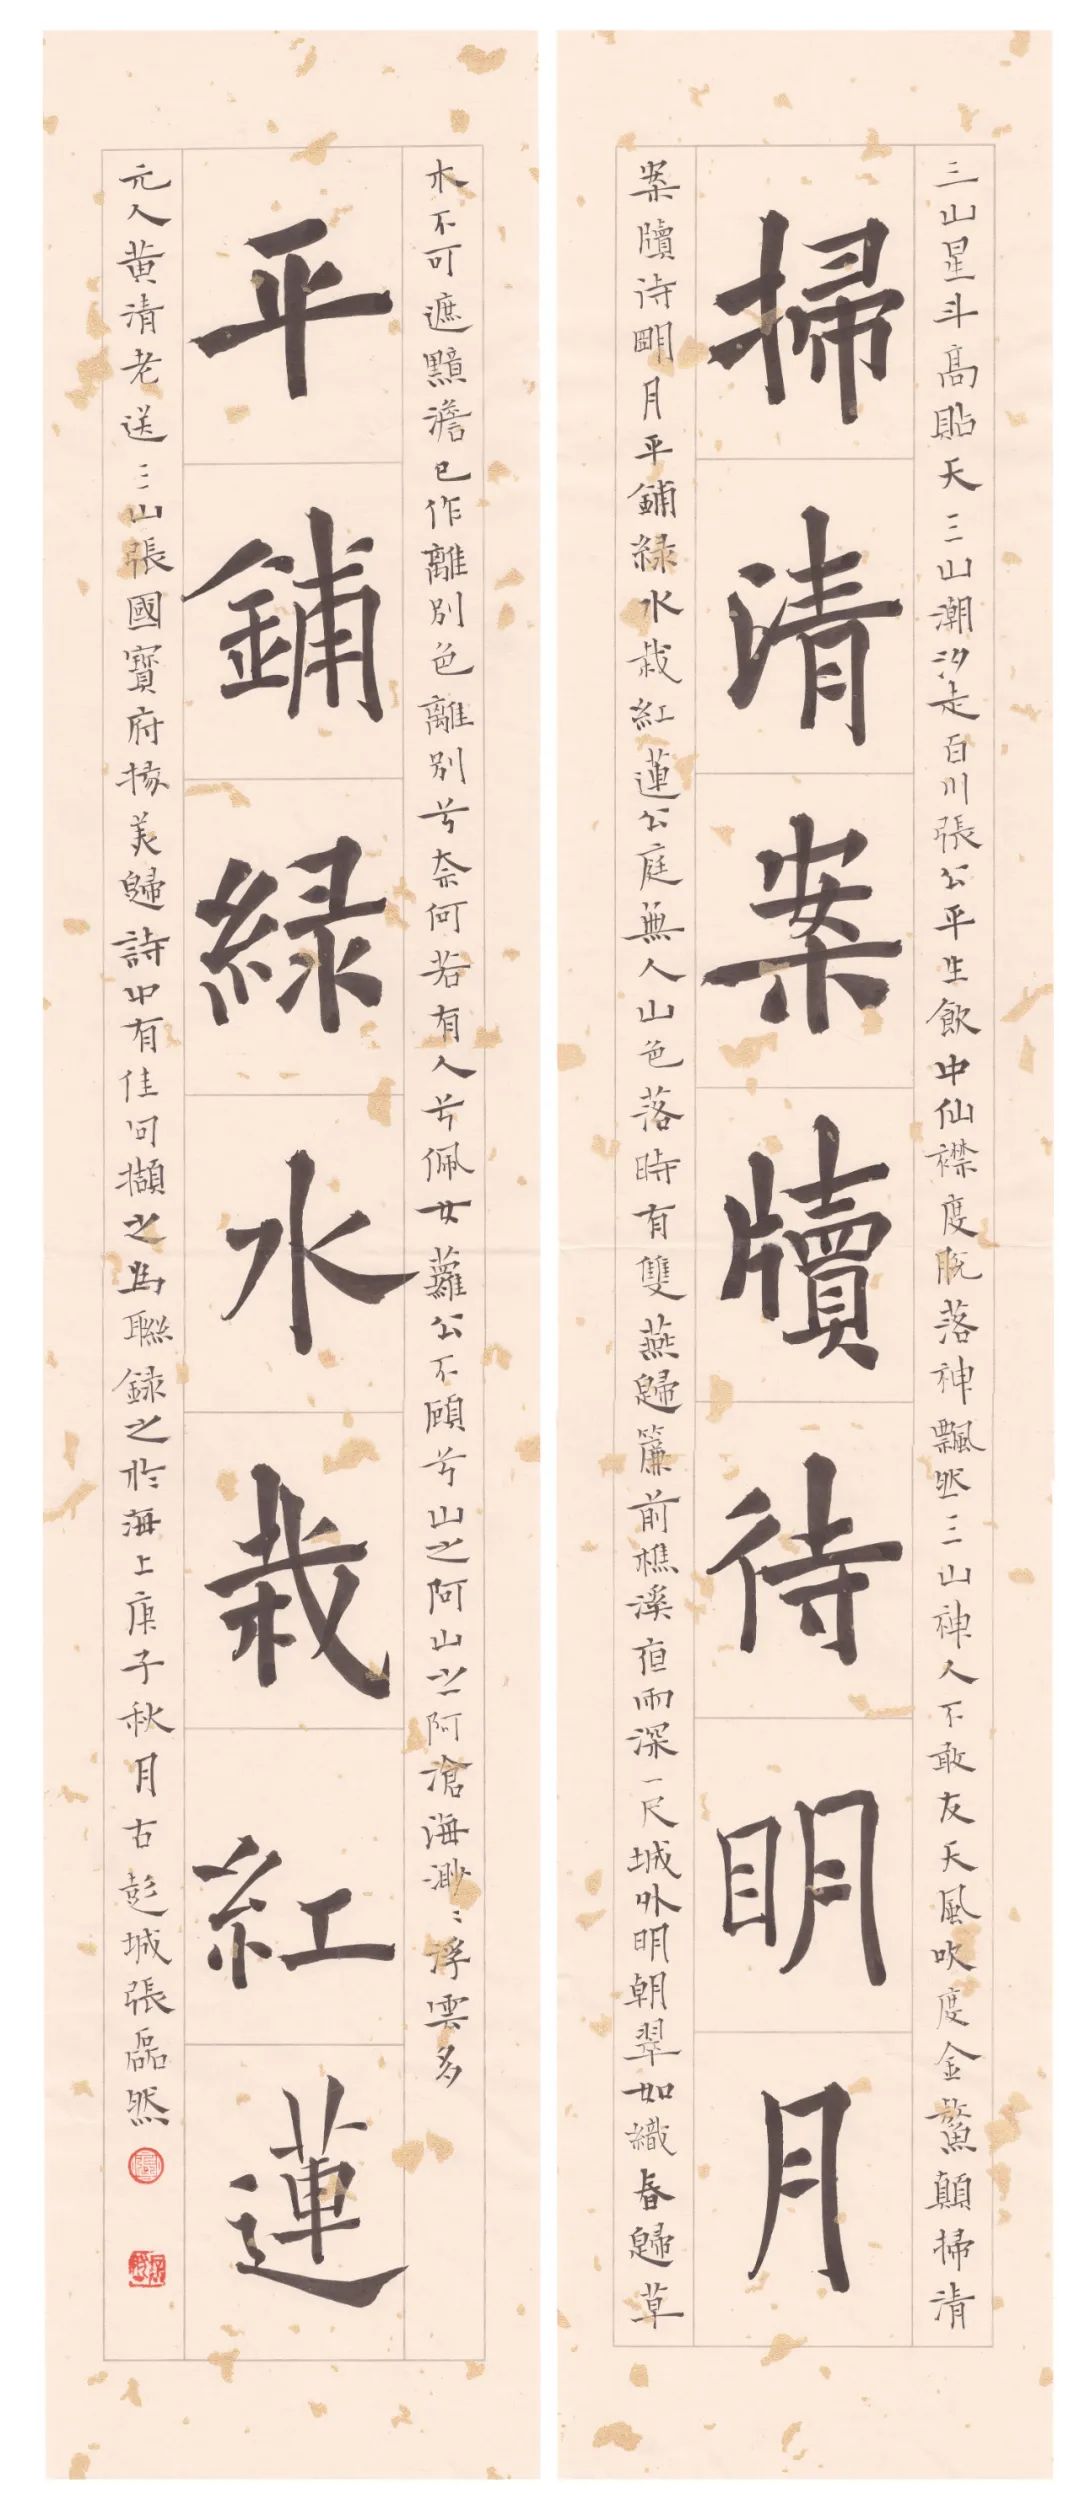 三山星斗高貼天三山潮汐走百川張公平生飲中仙襟度脫落神飄然三山神人不敢友天風吹度金鰲顛掃清
掃清案牘待明月
案牘待朙月平鋪綠水栽紅蓮公庭無人山色落時有雙燕歸簾前樵溪夜雨深一尺城外明朝翠如織春歸草
木不可遮黯澹已作離別色離別兮奈何若有人兮佩女蘿公不顧兮山之阿山之阿滄海渺〻浮雲多
平鋪綠水栽紅蓮
元人黃清老送三山張國寶府掾美歸詩中有佳句擷之為聯錄之於海上庚子秋月古彭城張磊然